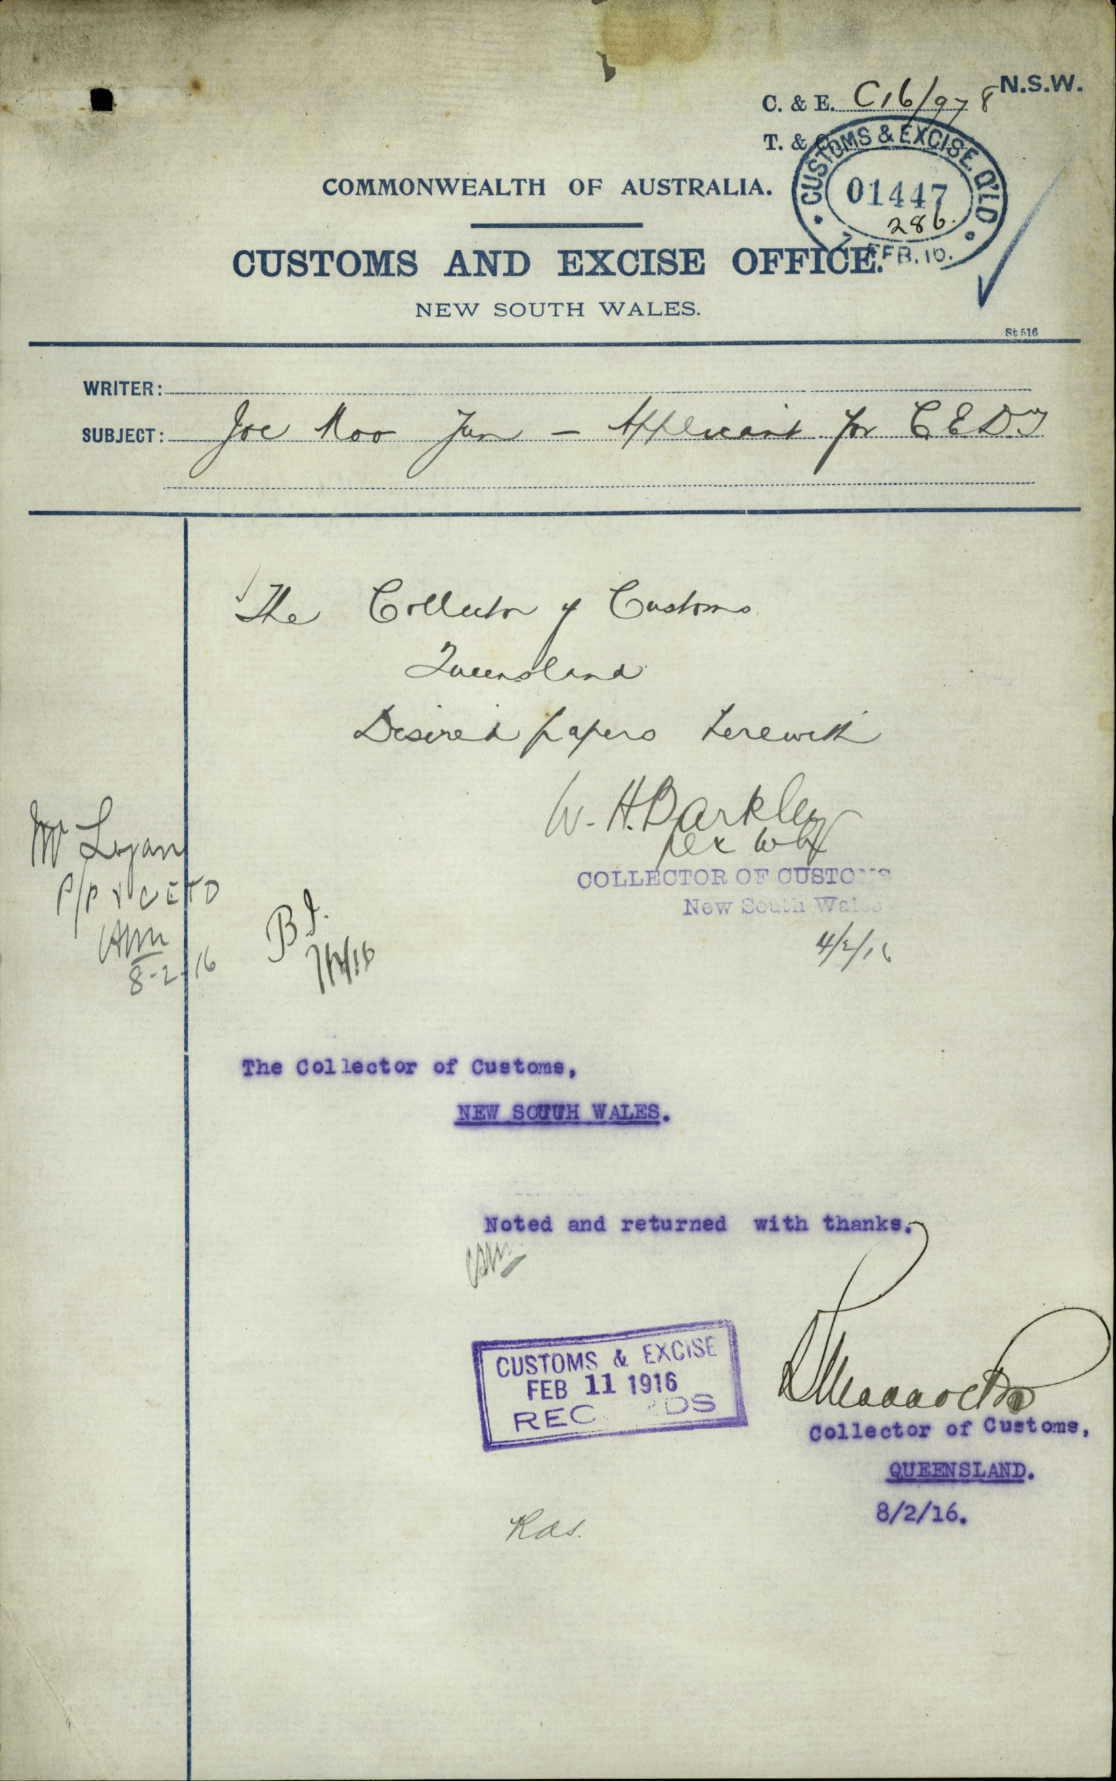 N.S.W.
C. & E. C16/978
T. & C.
CUSTOMS & EXCISE. Q'LD
01447
286.
7 FEB. 16.
COMMONWEALTH OF AUSTRALIA.
CUSTOMS AND EXCISE OFFICE.
NEW SOUTH WALES.
St 516
WRITER:
SUBJECT: Joe Moo Jun - Applicant for C E D T
The Collector of Customs
Queensland
Desired papers herewith
W. H. Barkley
per
COLLECTOR OF CUSTOMS
New South Wales
4/2/16
Mr Logan
P/P & C E T D
8-2-16
B.I.
7/2/16
The Collector of Customs,
NEW SOUTH WALES.
Noted and returned with thanks.
CUSTOMS & EXCISE
FEB 11 1916
RECORDS
Collector of Customs,
QUEENSLAND.
8/2/16.
Rds.